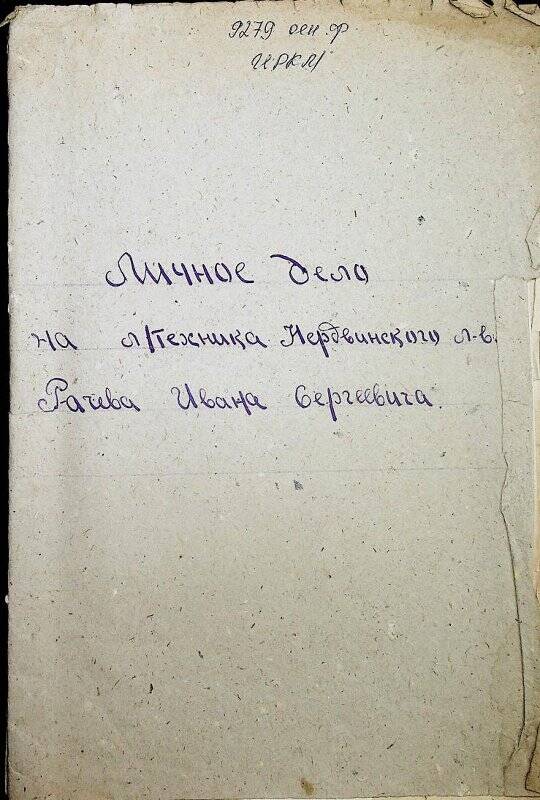 9279 осн. ф.
ИРКМ
Личное дело
на л/техника Нердвинского л-в.
Рачева Ивана Сергеевича.